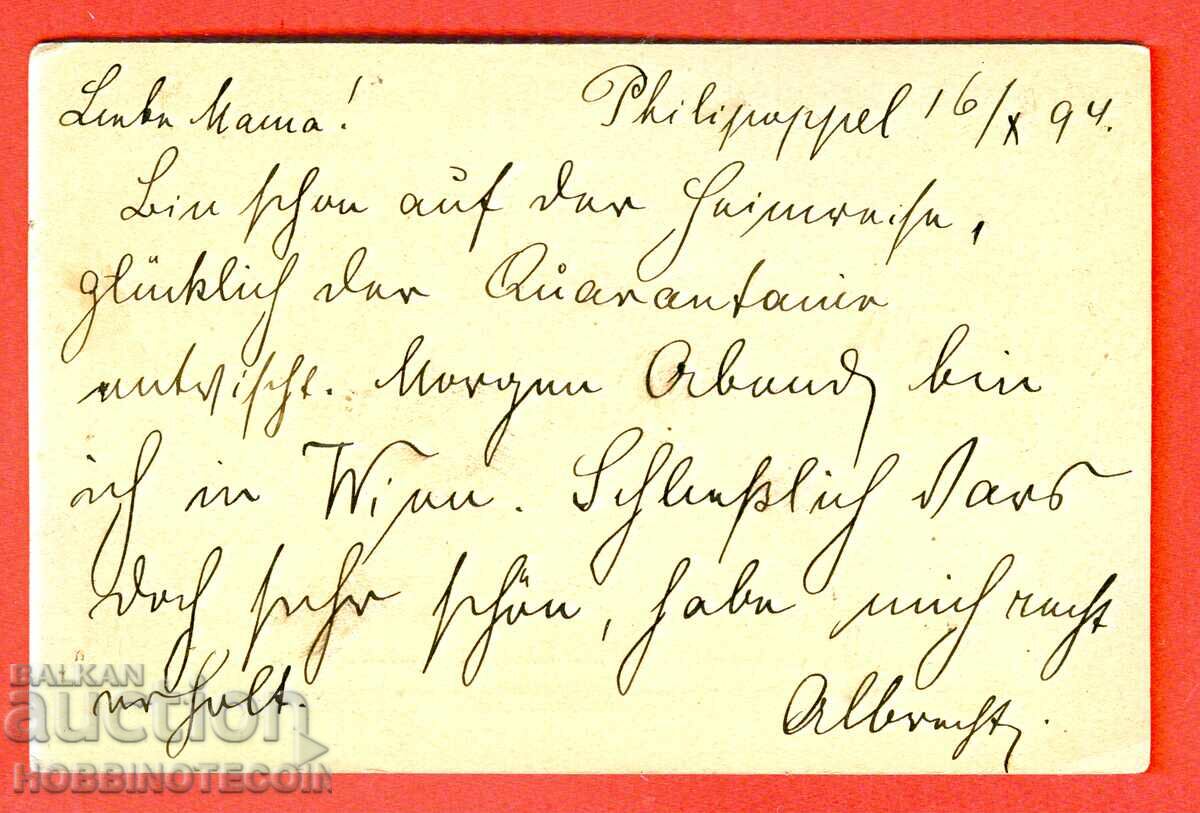 Liebe Mama! Philipoppel 16/X 94.
Bin schon auf der Heimreise,
glücklich der Quarantaine
entwischt. Morgen Abend bin
ich in Wien. Schließlich wars
doch sehr schön, habe mich recht
erholt. Albrecht.
BALKAN
auction
HOBBINOTECOIN